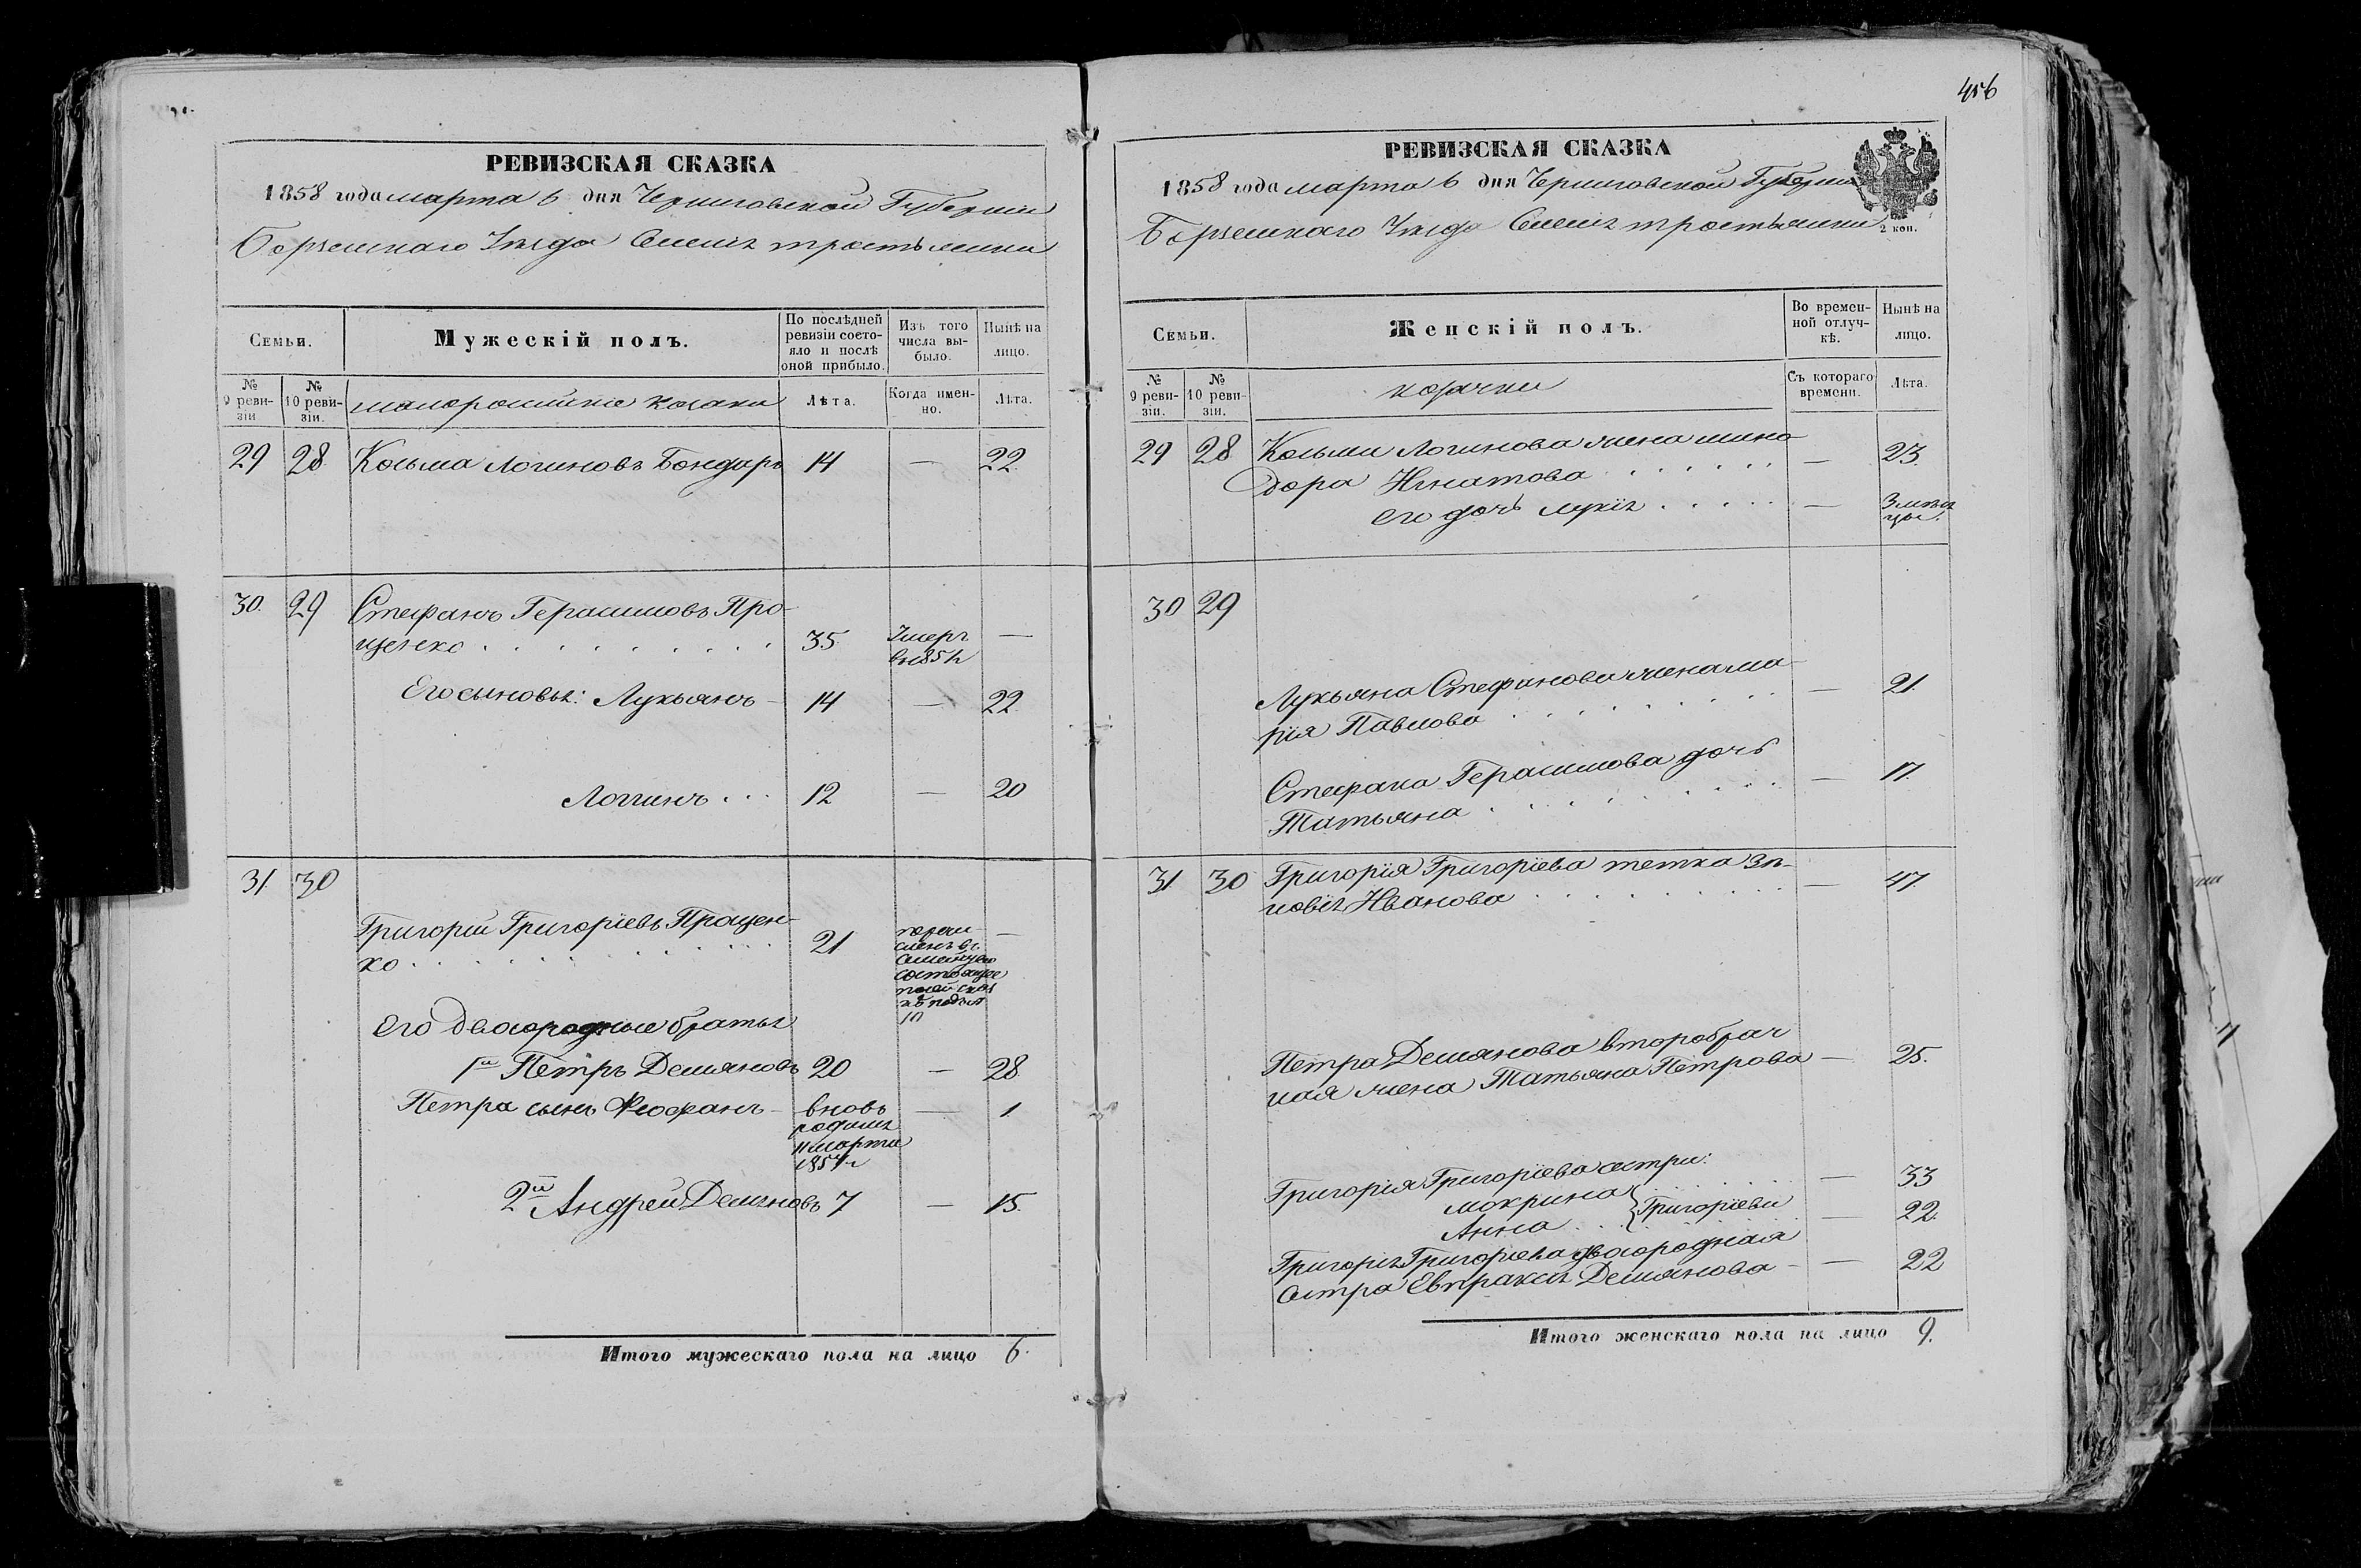 РЕВИЗСКАЯ СКАЗКА
1858 года марта 6 дня Черниговской Губерніи
Борзенскаго Уѣзда Селенія Тростянки
Семьи.
Мужескій полъ.
По послѣдней
ревизіи состо-
яло и послѣ
оной прибыло.
Изъ того
числа вы-
было.
Нынѣ на
лицо.
№
9 реви-
зіи
№
10 реви-
зіи.
малороссійскіе козаки
Лѣта.
Когда имен-
но.
Лѣта.
29 28 Козьма Логиновъ Бондарь 14 — 22
30. 29 Стефанъ Герасимовъ Про-
ценко . . . . . . . . . 35 Умеръ —
Его сыновья: Лукьянъ — 14 — 22
Логинъ . . . 12 — 20
31. 30
Григорій Григоріевъ Процен-
ко . . . . . . . . . 21 —
Его двоюродные братья
1й Петръ Демяновъ 20 — 28
Петра сынъ Феофанъ — вновь — 1
родился
11 марта
1857 г
2й Андрей Демяновъ 7 — 15.
Итого мужескаго пола на лицо 6.
456
РЕВИЗСКАЯ СКАЗКА
1858 года марта 6 дня Черниговской Губерніи
Борзенскаго Уѣзда Селенія Тростянки
2 коп.
Семьи.
Женскій полъ.
Во времен-
ной отлуч-
кѣ.
Нынѣ на
лицо.
№
9 реви-
зіи.
№
10 реви-
зіи.
козачки
Съ котораго
времени.
Лѣта.
29 28 Козьми Логинова жена
дора Игнатова . . . . . . — 23.
его дочь Лукія . . . . . — 3 мѣся
цы.
30 29
Лукьяна Стефанова жена Ма-
рія Павлова . . . . . . . — 21.
Стефана Герасимова дочь
Татьяна . . . . . . . . — 17.
31 30 Григорія Григоріева тетка Зи-
новія Иванова . . . . . . . — 47
Петра Демянова второбрач
ная жена Татьяна Петрова — 25.
Григорія Григоріева сестри:
Мокрина . . . . — 33
Анна . . . Григоріеви — 22.
Григорія Григоріева двоюродная
сестра Евпраксія Демянова — 22
Итого женскаго пола на лицо 9.